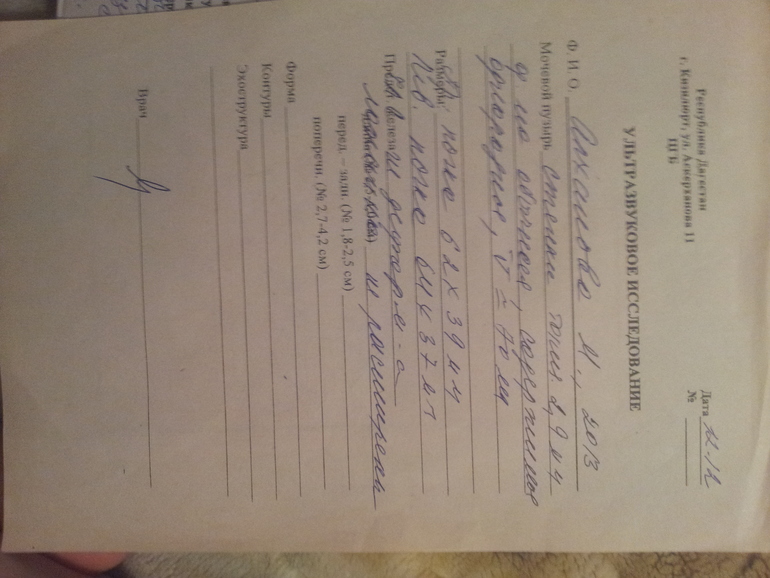 Республика Дагестан
г. Кизилюрт, ул. Аскерханова 11
ЦГБ
Дата 12.12
№
УЛЬТРАЗВУКОВОЕ ИССЛЕДОВАНИЕ
Ф. И. О. М., 2013
Мочевой пузырь стенки толщ. 2,9 мм
обычная, содержимое
однородное, V ≈ 70 мл
Размеры: почка 62 х 39 мм
Лев. почка 64 х 37 мм
Пред. железа не
не расширены
перед. – задн. (№ 1,8-2,5 см)
поперечн. (№ 2,7-4,2 см)
Форма
Контуры
Экоструктура
Врач